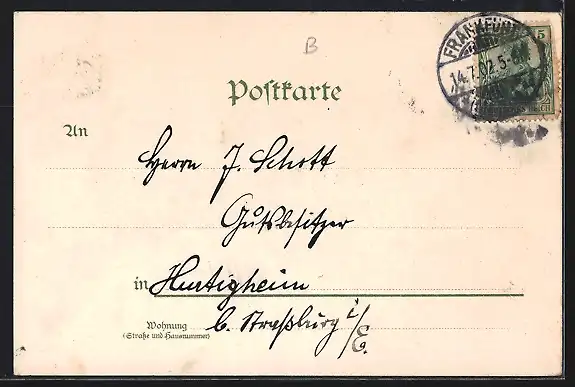 B
FRANKFURT
14.7.02.5-6N.
5
Postkarte
An
Herrn J. Schott
Gutsbesitzer
in Hurtigheim
Wohnung
(Straße und Hausnummer)
b. Straßburg i/E.